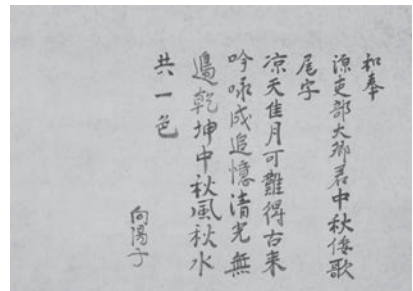 和奉
源吏部大卿君中秋倭歌
尾字
凉天佳月可難得古来
吟咏成追憶清光無
邊乾坤中秋風秋水
共一色
向陽子